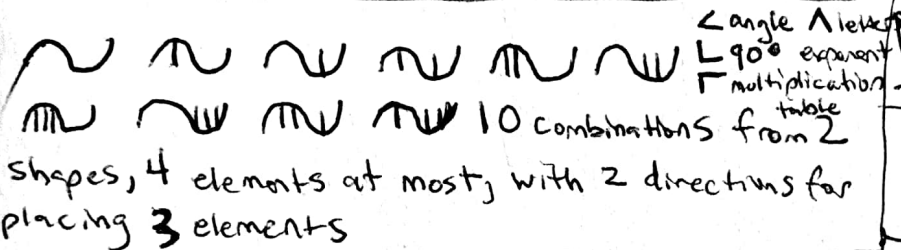 < angle Λ letter
∟ 90° exponent
Γ multiplication
table
10 combinations from 2
shapes, 4 elements at most, with 2 directions for
placing 3 elements